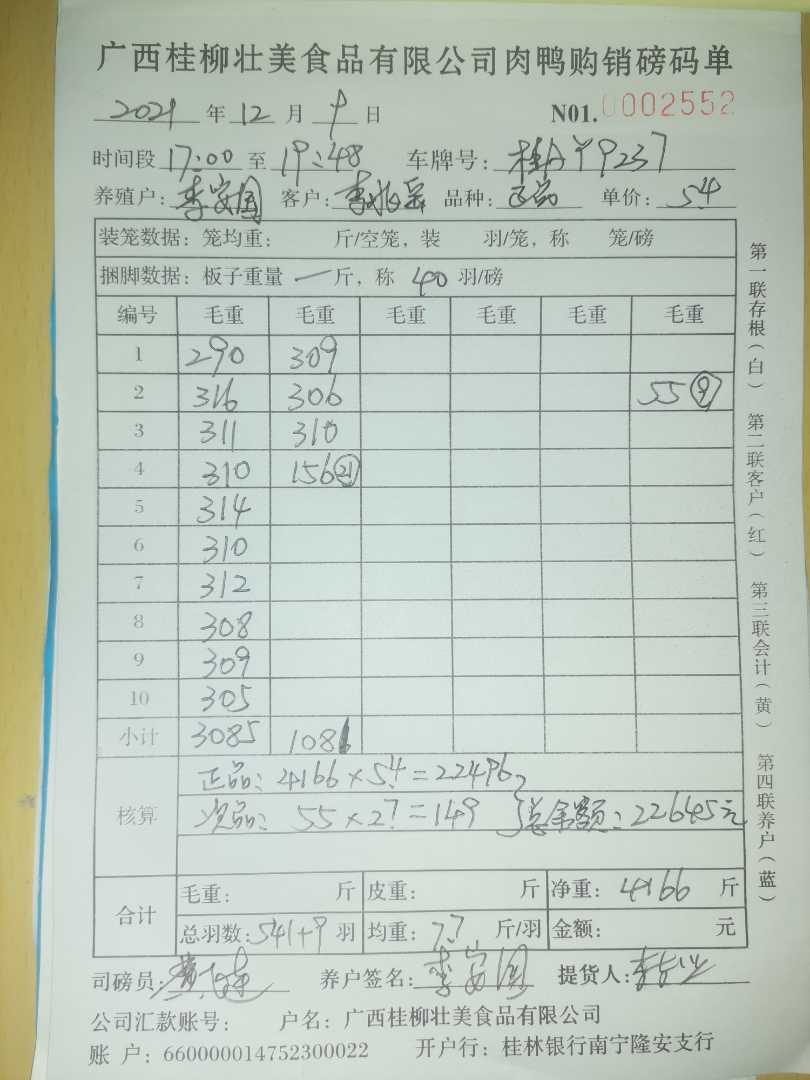 广西桂柳壮美食品有限公司肉鸭购销磅码单
2021 年 12 月 9 日 N01. 0002552
时间段 17:00 至 19:48 车牌号: 桂 Y9237
养殖户: 李安国 客户: 李 品种: 正品 单价: 5.4
装笼数据: 笼均重: 斤/空笼, 装 羽/笼, 称 笼/磅
捆脚数据: 板子重量 一 斤, 称 40 羽/磅
编号 毛重 毛重 毛重 毛重 毛重 毛重
1 290 309
2 316 306 55 ⑨
3 311 310
4 310 156 ㉑
5 314
6 310
7 312
8 308
9 309
10 305
小计 3085 1081
核算
正品: 4166×5.4=22496
次品: 55×2.7=149 总金额: 22645元
合计
毛重: 斤 皮重: 斤 净重: 4166 斤
总羽数: 541+9 羽 均重: 7.7 斤/羽 金额: 元
司磅员: 黄 养户签名: 李安国 提货人: 李
公司汇款账号: 户名: 广西桂柳壮美食品有限公司
账 户: 660000014752300022 开户行: 桂林银行南宁隆安支行
第一联存根(白) 第二联客户(红) 第三联会计(黄) 第四联养户(蓝)